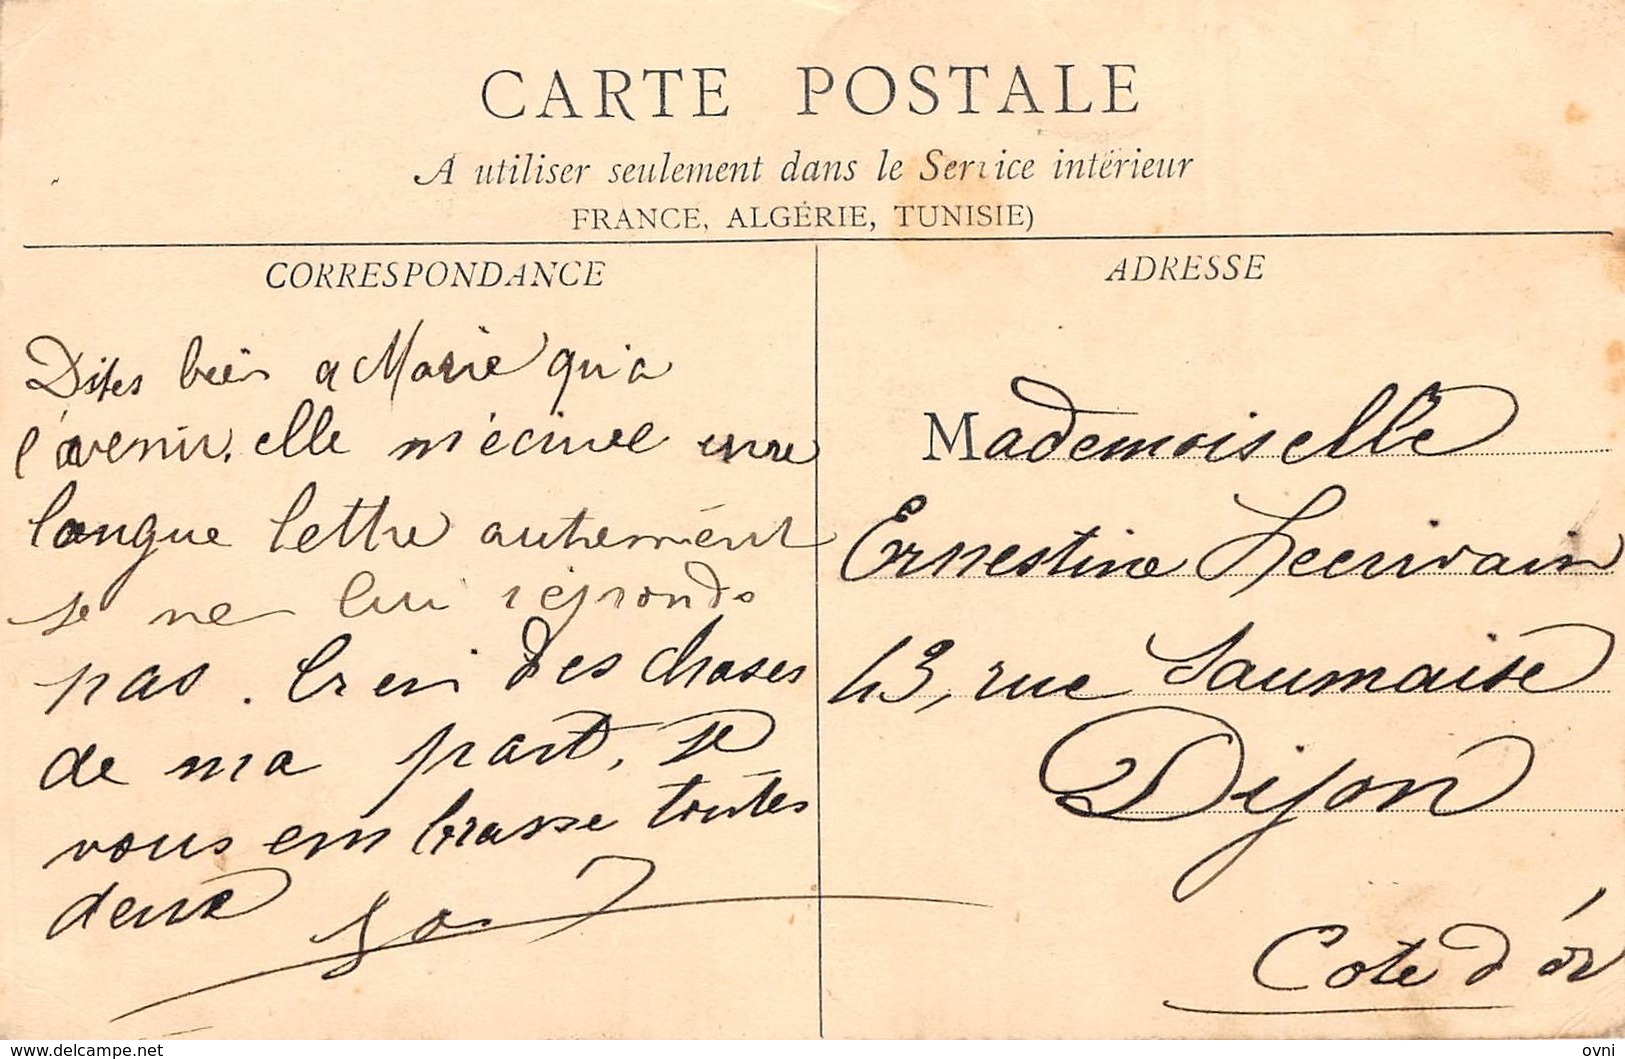 CARTE POSTALE
A utiliser seulement dans le Service intérieur
FRANCE, ALGÉRIE, TUNISIE)
CORRESPONDANCE
Dites bien a Marie qu'a
l'avenir, elle m'écrive une
longue lettre autrement
je ne lui réponds
pas. bien des choses
de ma part, je
vous embrasse toutes
deux
ADRESSE
Mademoiselle
Ernestine Lecrivain
43, rue Saumaise
Dijon
Cote d'or
www.delcampe.net
ovni